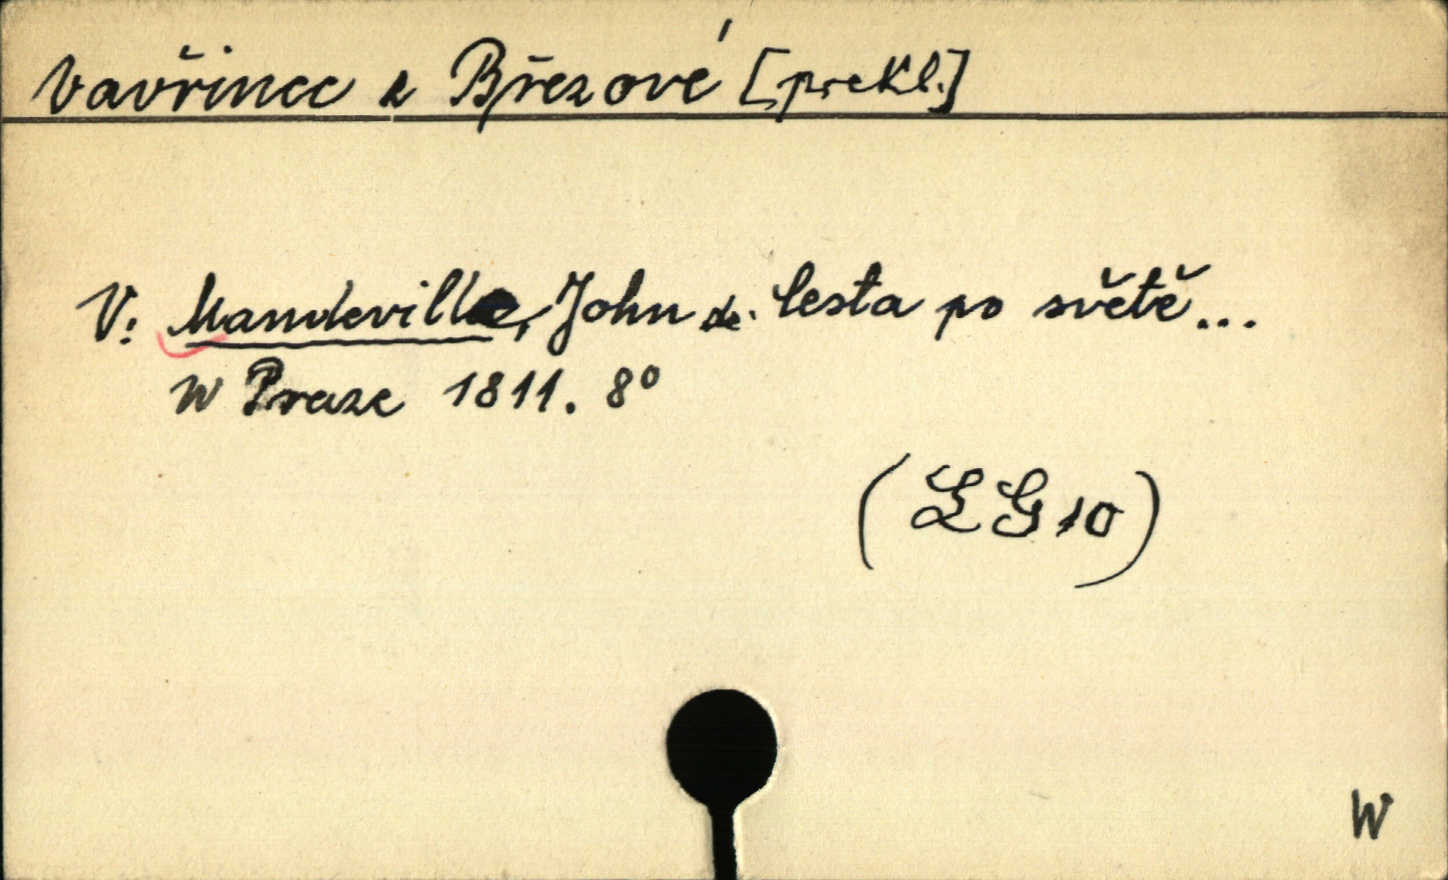 Vavřinec z Březové [prekl.]
V: Mandeville, John de. Cesta po světě...
W Praze 1811. 8°
(LG 10)
W